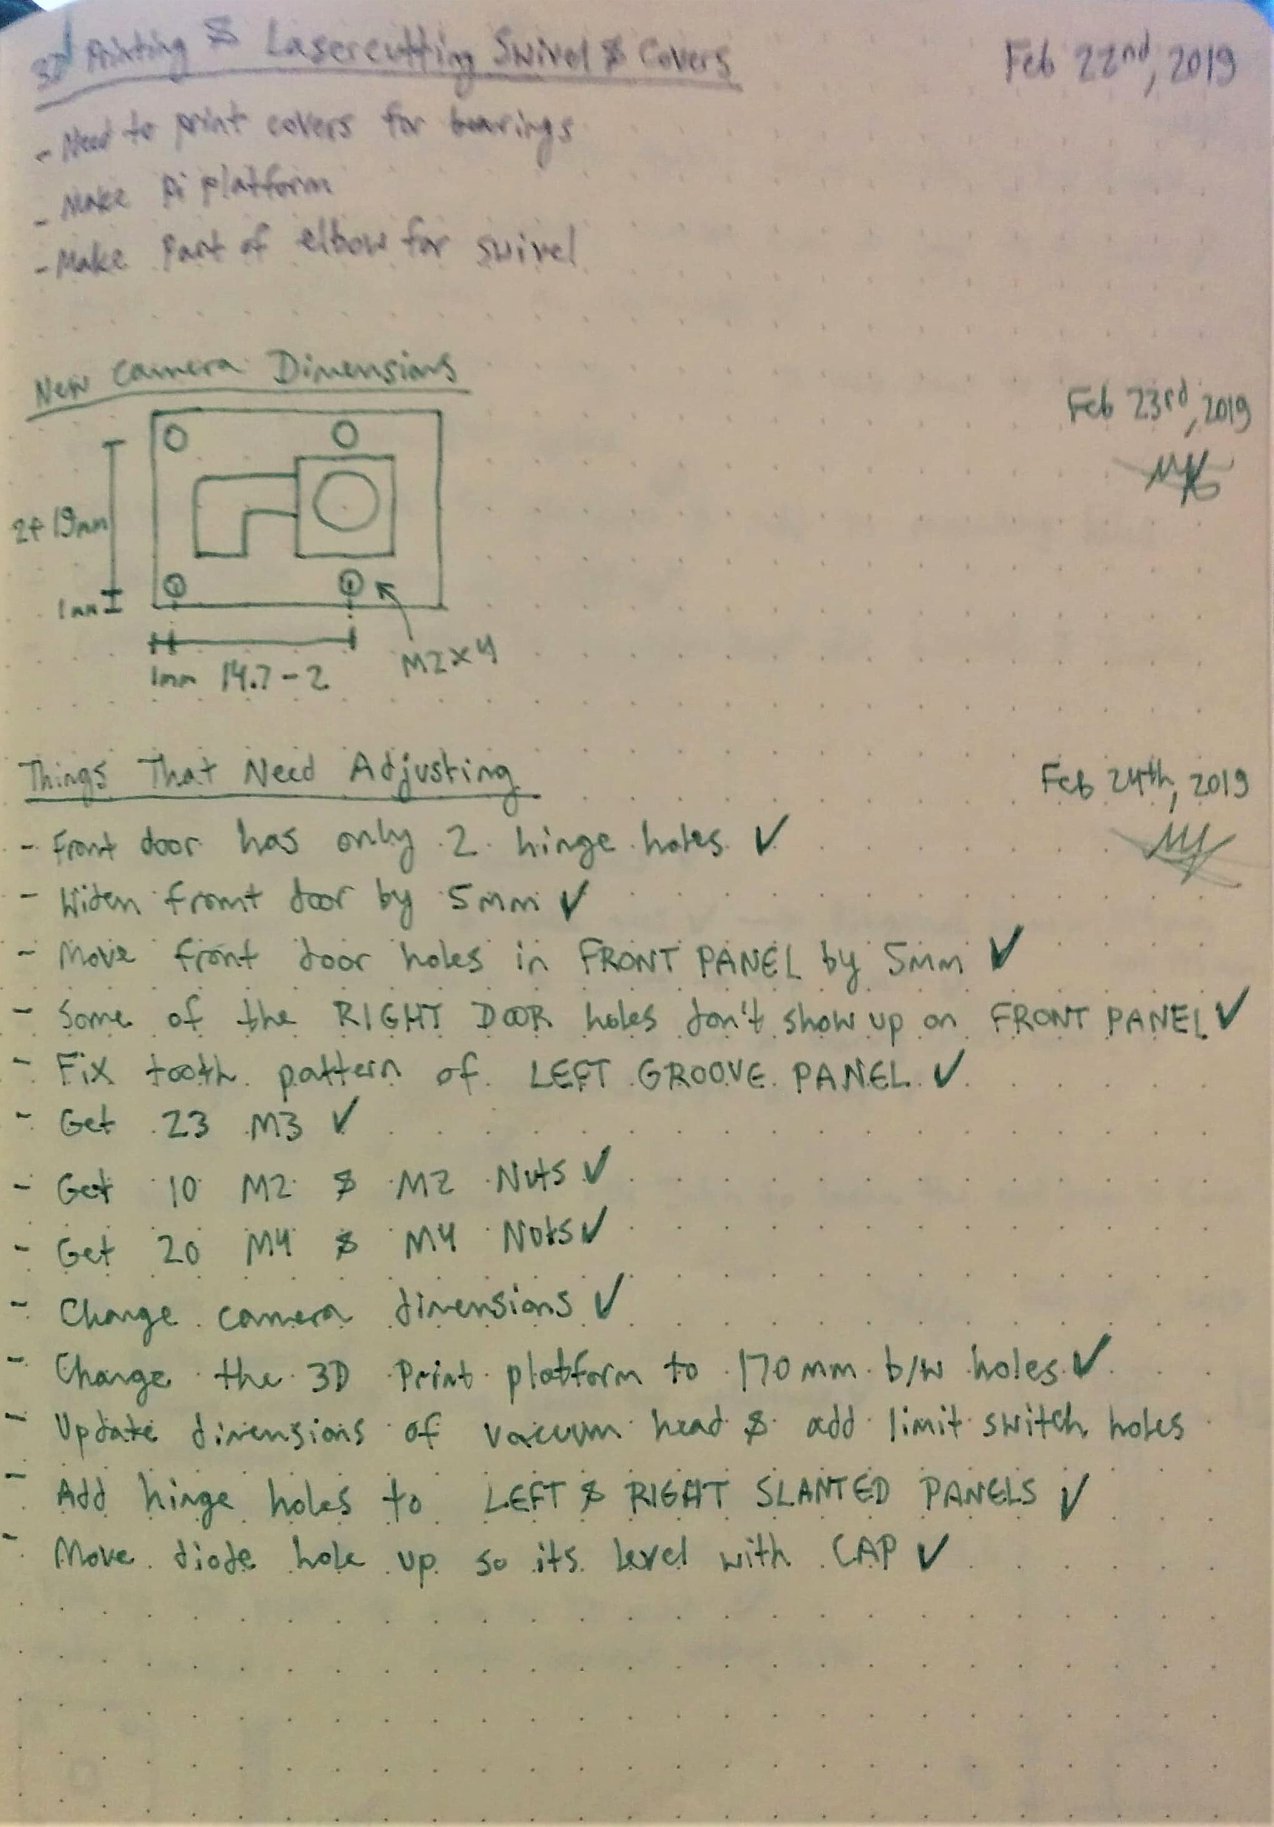 3D Printing & Lasercutting Swivel & Covers
Feb 22nd, 2019
- Need to print covers for bearings
- Make Pi platform
- Make Part of elbow for swivel
New Camera Dimensions
Feb 23rd, 2019
19mm
1mm
1mm 14.7-2
M2x4
Things That Need Adjusting
Feb 24th, 2019
- Front door has only 2 hinge holes ✓
- Widen front door by 5mm ✓
- Move front door holes in FRONT PANEL by 5mm ✓
- Some of the RIGHT DOOR holes don't show up on FRONT PANEL ✓
- Fix tooth pattern of LEFT GROOVE PANEL ✓
- Get 23 M3 ✓
- Get 10 M2 & M2 Nuts ✓
- Get 20 M4 & M4 Nuts ✓
- Change camera dimensions ✓
- Change the 3D Print platform to 170mm b/w holes ✓
- Update dimensions of vacuum head & add limit switch holes
- Add hinge holes to LEFT & RIGHT SLANTED PANELS ✓
- Move diode hole up so its level with CAP ✓